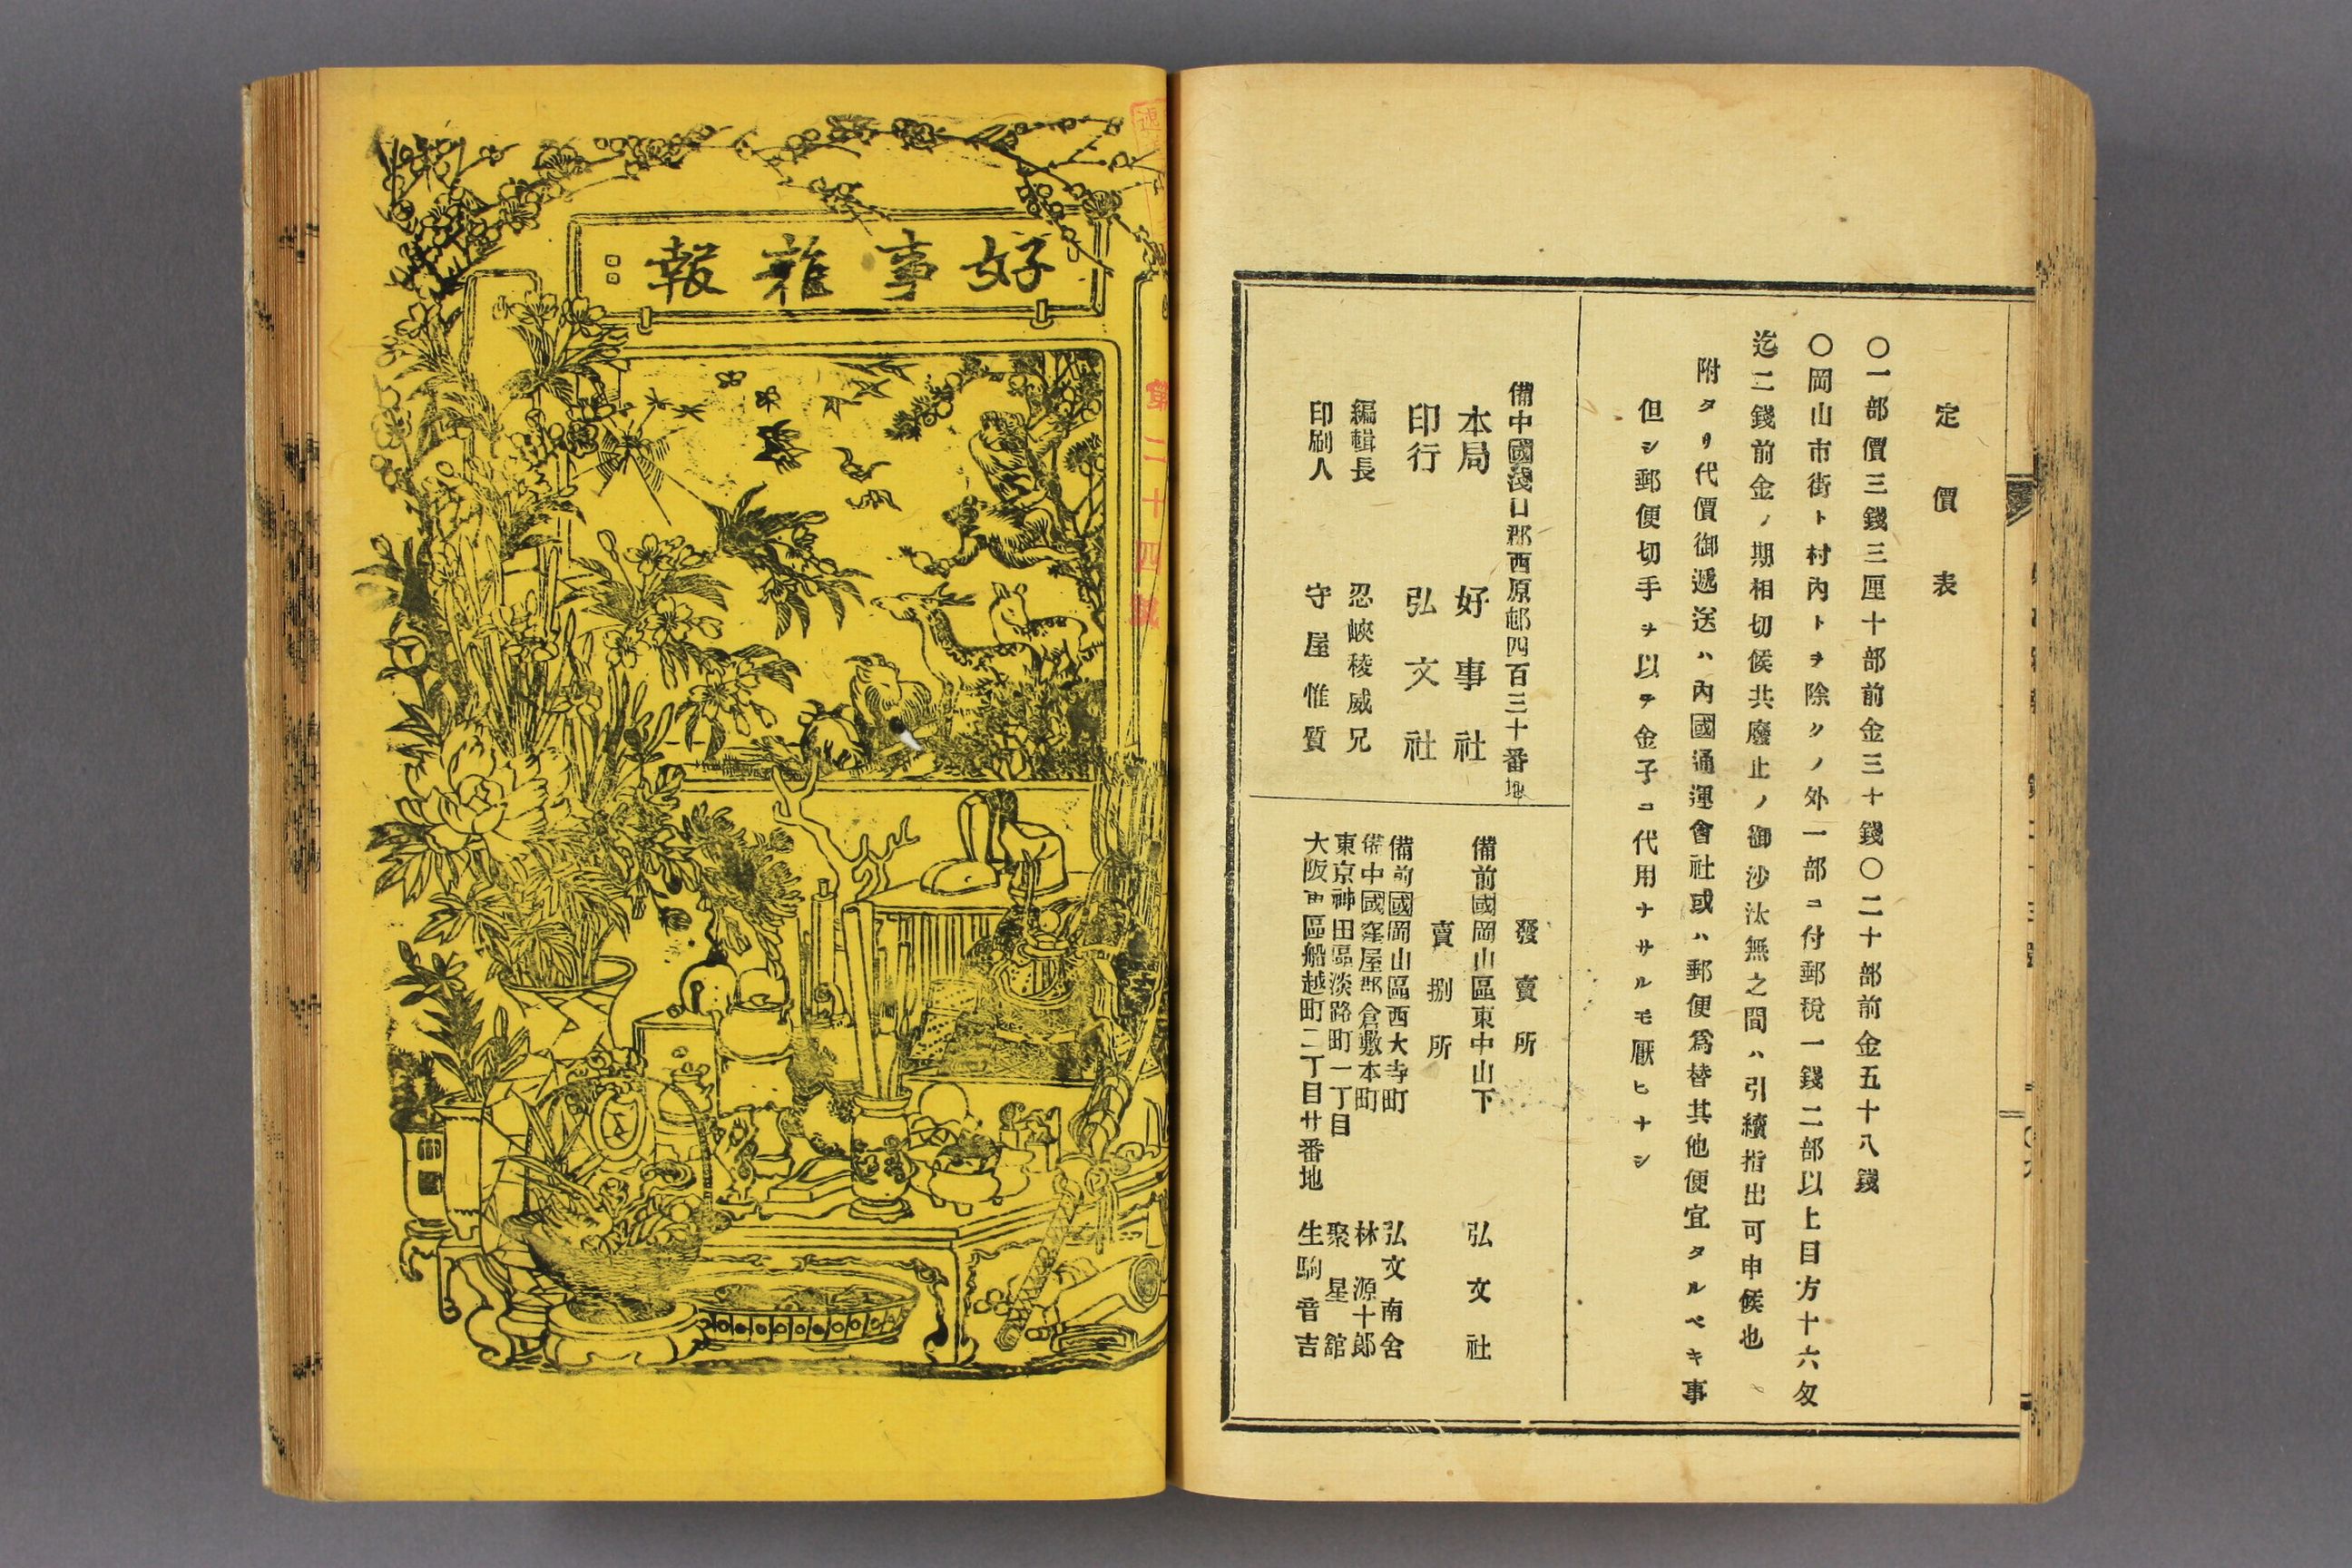 定價表
〇一部價三錢三厘十部前金三十錢〇二十部前金五十八錢
〇岡山市街ト村內トヲ除クノ外一部ニ付郵稅一錢二部以上目方十六匁
迄二錢前金ノ期相切候共廢止ノ御沙汰無之間ハ引續指出可申候也
附タリ代價御遞送ハ內國通運會社或ハ郵便爲替其他便宜タルベキ事
但シ郵便切手ヲ以テ金子ニ代用ナサルモ厭ヒナシ
備中國淺口郡西原邨四百三十番地
本局 好事社
印行 弘文社
編輯長 忍峽稜威兄
印刷人 守屋惟質
發賣所
備前國岡山區東中山下 弘文社
賣捌所
備前國岡山區西大寺町 弘文南舍
備中國窪屋郡倉敷本町 林源十郎
東京神田區淡路町一丁目 聚星舘
大阪東區船越町二丁目廿番地 生駒音吉
好事雜報
第二十四號